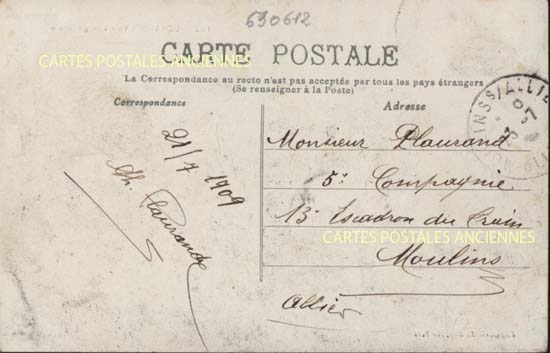 630612
CARTES POSTALES ANCIENNES
CARTE POSTALE
La Correspondance au recto n'est pas acceptée par tous les pays étrangers
(Se renseigner à la Poste)
Correspondance
Adresse
21/7 1909
Plaurand
Monsieur Plaurand
5e Compagnie
13e Escadron du Train
CARTES POSTALES ANCIENNES
Moulins
Allier